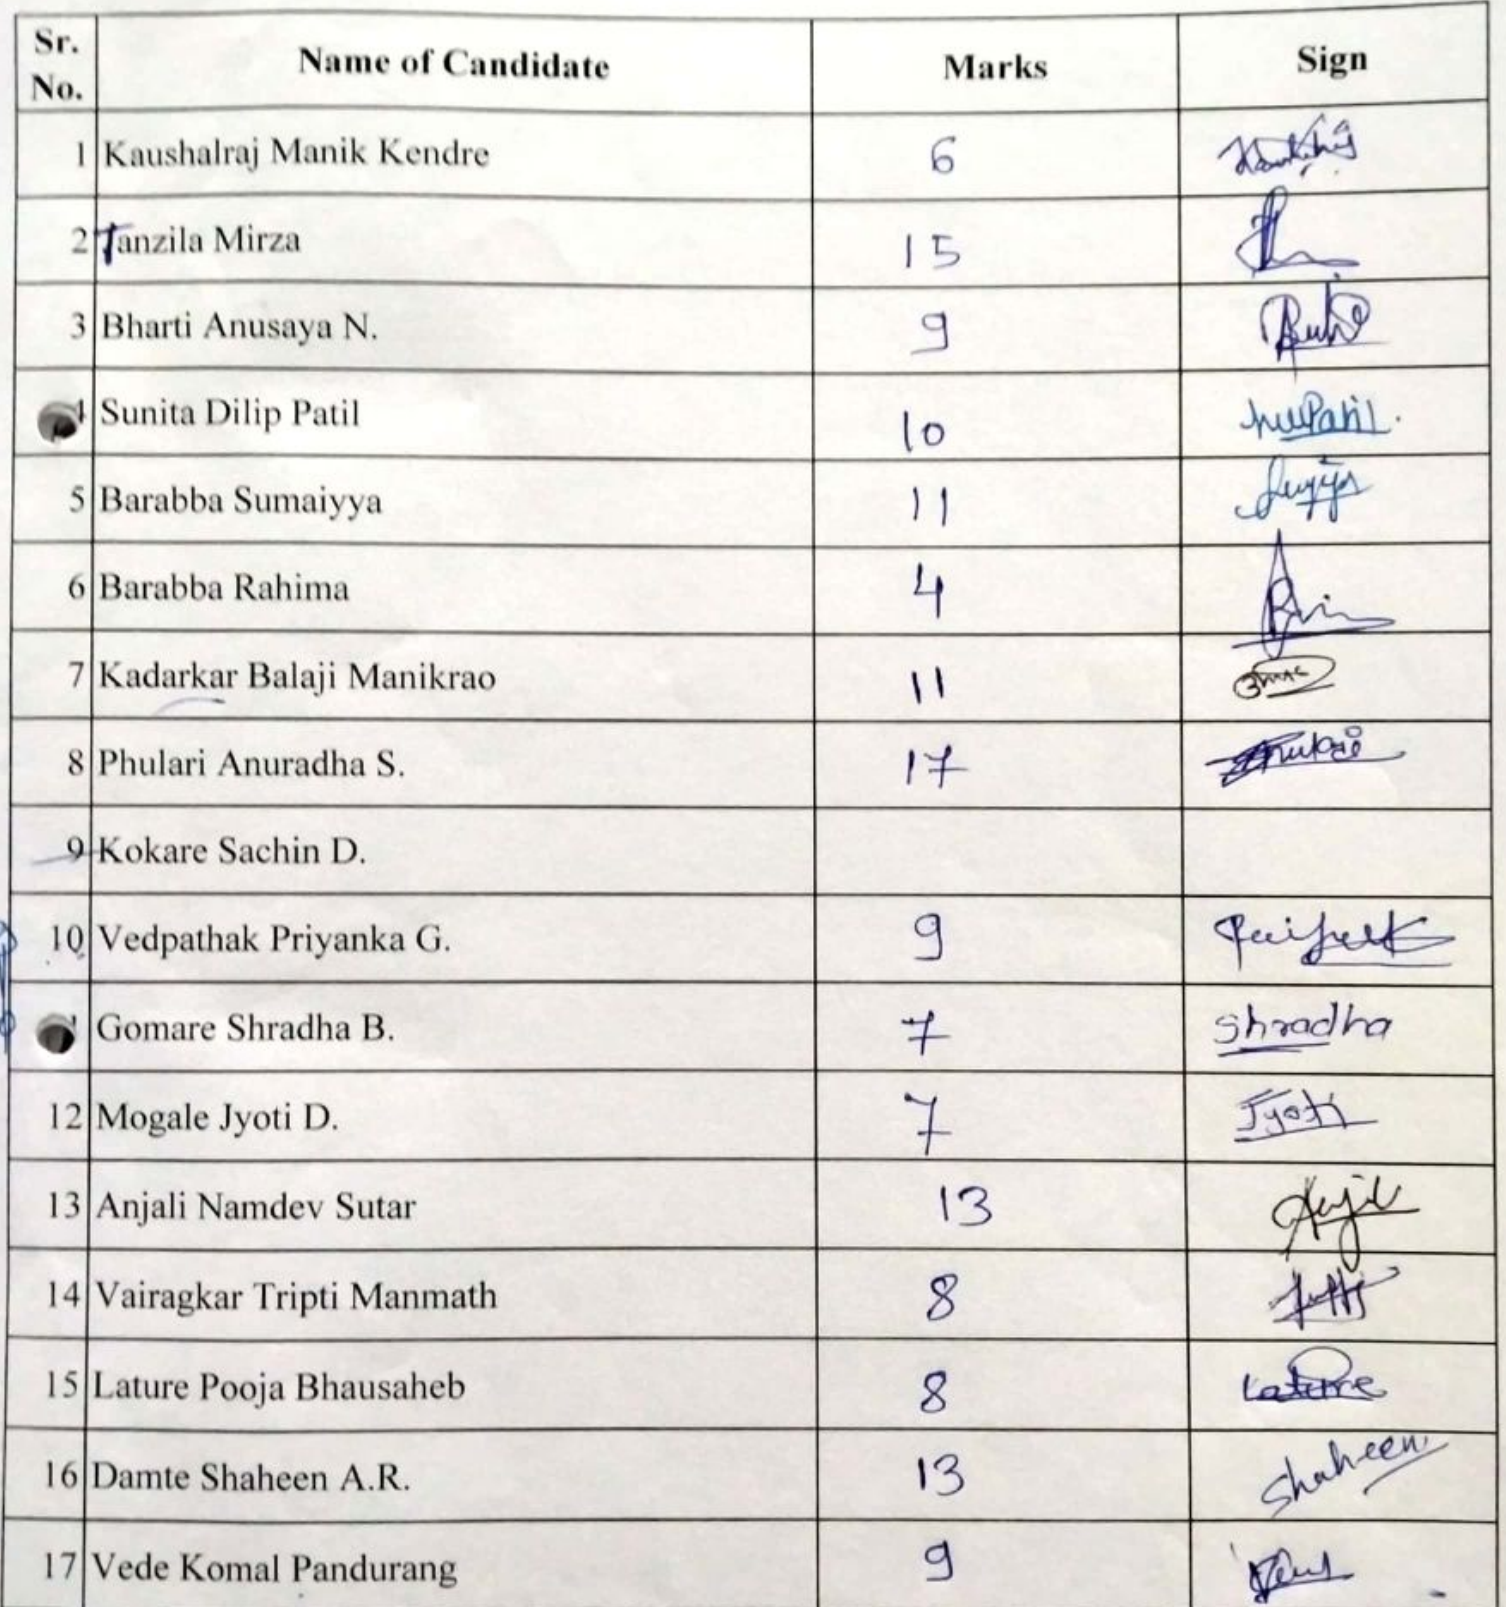 Sr. No. Name of Candidate Marks Sign
1 Kaushalraj Manik Kendre 6
2 Tanzila Mirza 15
3 Bharti Anusaya N. 9
4 Sunita Dilip Patil 10
5 Barabba Sumaiyya 11
6 Barabba Rahima 4
7 Kadarkar Balaji Manikrao 11
8 Phulari Anuradha S. 17
9 Kokare Sachin D.
10 Vedpathak Priyanka G. 9
Gomare Shradha B. 7 Shradha
12 Mogale Jyoti D. 7 Jyoti
13 Anjali Namdev Sutar 13
14 Vairagkar Tripti Manmath 8
15 Lature Pooja Bhausaheb 8 Lature
16 Damte Shaheen A.R. 13 Shaheen
17 Vede Komal Pandurang 9